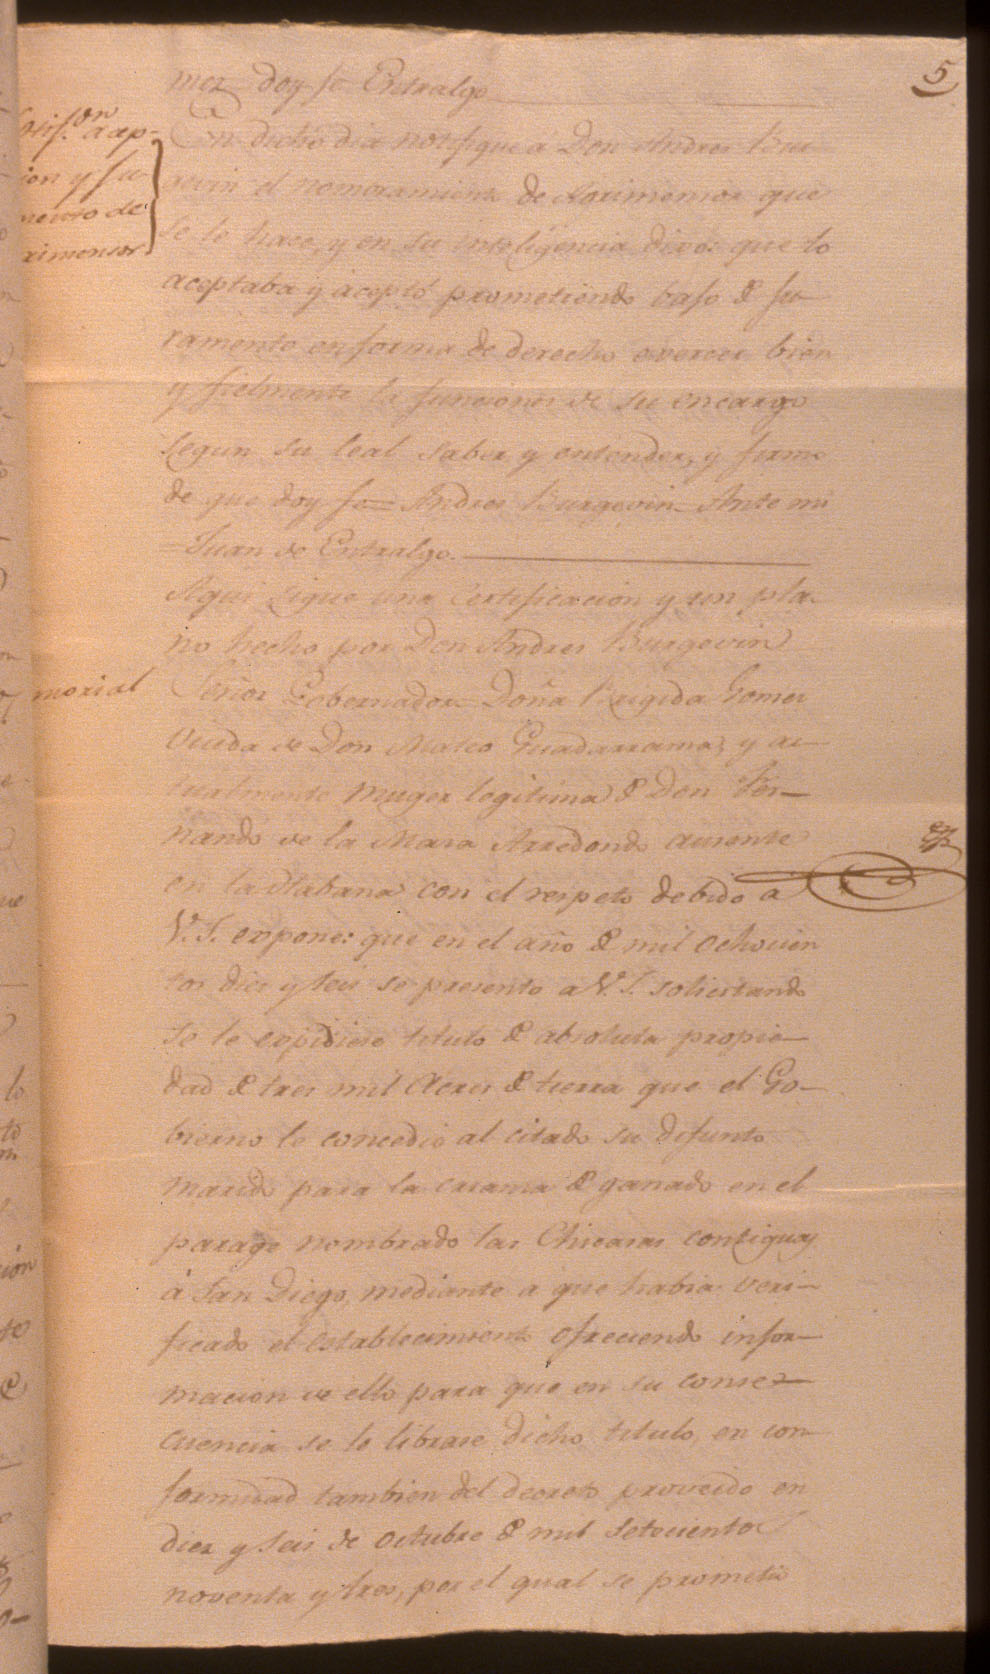 5
mez doy fe Entralgo
En dicho dia notifiqué a Don Andres Bur-
gevin el nombramiento de Agrimensor que
se le hace, y en su inteligencia dixo: que lo
aceptaba y aceptó prometiendo baso de ju-
ramento en forma de derecho exercer bien
y fielmente la funciones de su encargo
segun su leal saber y entender, y firmo
de que doy fe = Andres Burgevin = Ante mi
= Juan de Entralgo.
Aqui sigue una Certificacion y un pla-
no hecho por Don Andres Burgevin
morial
Señor Gobernador = Doña Brigida Gomez
Viuda de Don Mateo Guadarrama, y ac-
tualmente muger legitima de Don Fer-
nando de la Maza Arredondo ausente
en la Habana con el respeto debido a
V.S. expone: que en el año de mil ochocien
tos diez y seis se presento a V.S. solicitando
se le expidiese titulo de absoluta propie-
dad de tres mil Acres de tierra que el Go-
bierno le concedio al citado su difunto
marido para la crianza de ganado en el
parage nombrado las Chicaras contiguas
á San Diego, mediante a que habia veri-
ficado el establecimiento ofreciendo infor-
macion de ello para que en su conse-
cuencia se le librase dicho titulo, en con-
formidad tambien del decreto proveido en
diez y seis de Octubre de mil setecientos
noventa y tres, por el qual se prometio